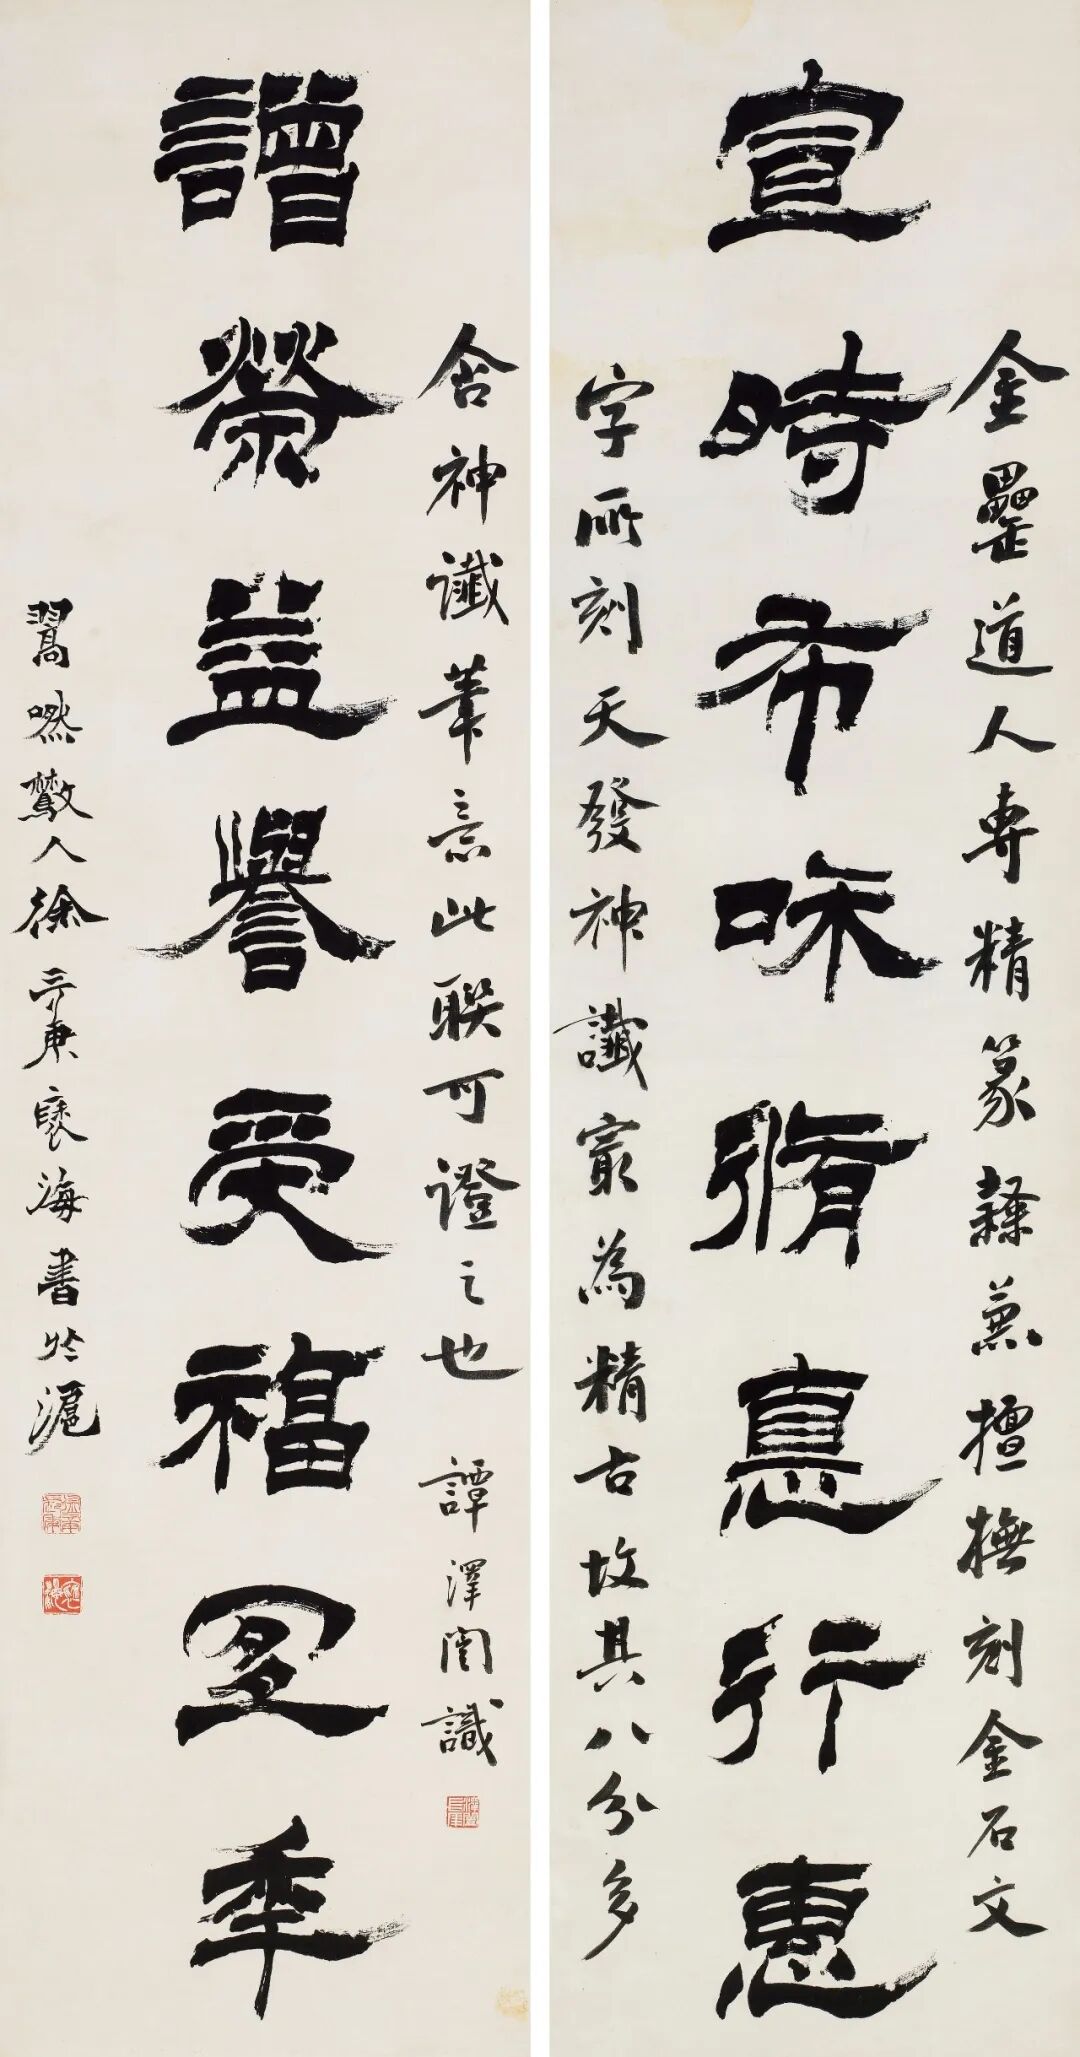 金罍道人專精篆隸兼擅橅刻金石文
宣時布和脩悳行惠
字所刻天發神讖㝡為精古故其八分多
含神讖筆意此聯可證之也 譚澤闓識
譄榮益譽受福宐秊
翯嘫散人徐三庚褎海書於滬